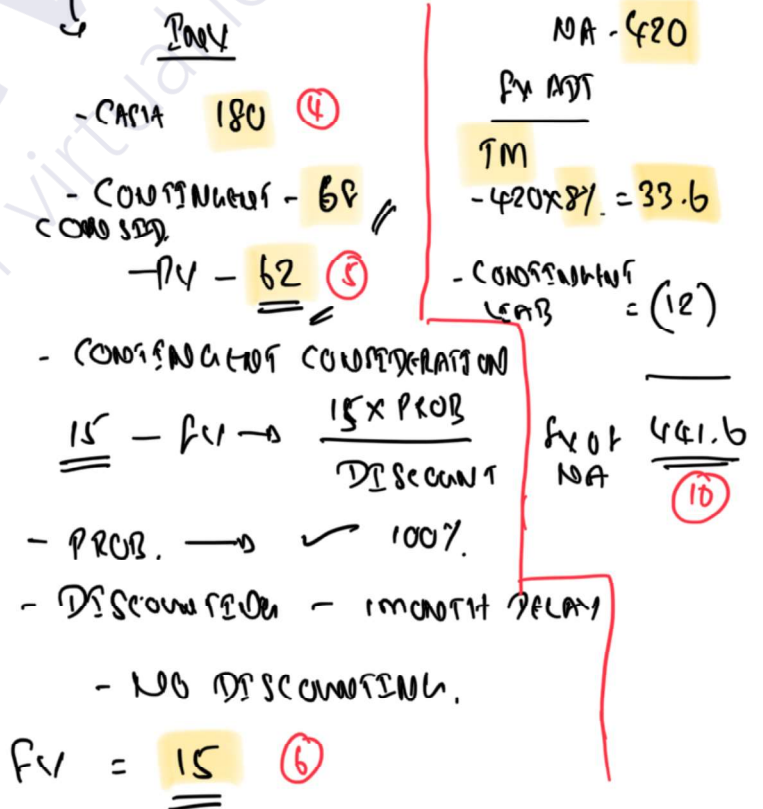 Inv
- CASH 180 ④
- CONTINGENT - 68
CONSID.
- PV - 62 ⑤
- CONTINGENT CONSIDERATION
15 - FV → 15 X PROB
DISCOUNT
- PROB. → ✓ 100%.
- DISCOUNTING - 1 MONTH DELAY
- NO DISCOUNTING.
FV = 15 ⑥
NA - 420
FV ADJ
TM
- 420 X 8% = 33.6
- CONTINGENT
LIAB = (12)
FV OF
NA 441.6
⑩
virtual